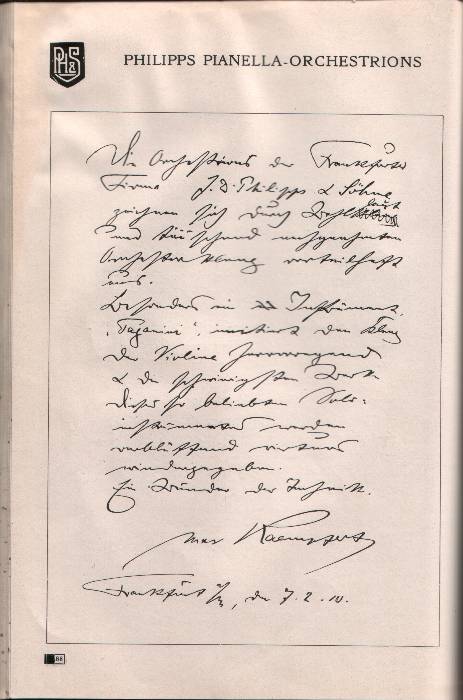 PH&S
PHILIPPS PIANELLA-ORCHESTRIONS
Die Orchestrions der Frankfurter
Firma J. D. Philipps & Söhne
zeichnen sich durch Wohllaut
und täuschend nachgeahmten
Orchesterklang vorteilhaft
aus.
Besonders im Instrument
"Paganini", imitiert den Klang
der Violine hervorragend
& die schwierigsten Werke
dieses so beliebten Solo-
instrumentes werden
verblüffend virtuos
wiedergegeben.
Ein Wunder der Technik.
Max Kaempfert
Frankfurt a/M, den 7. 2. 10.
88